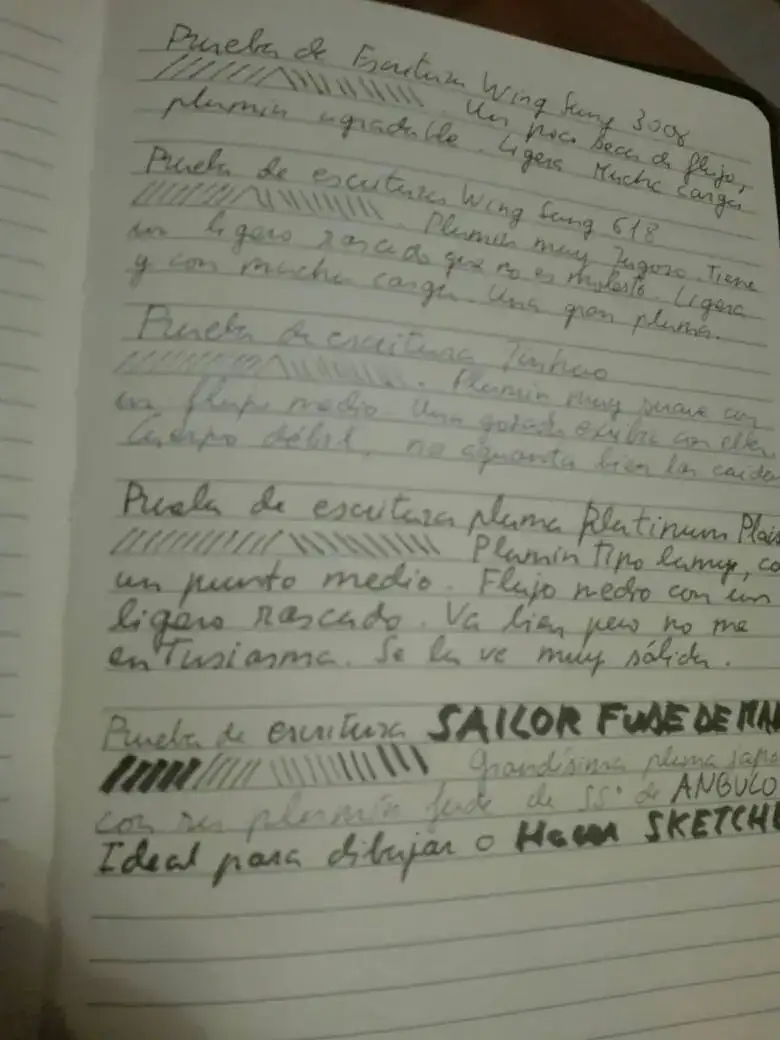 Prueba de Escritura Wing Sung 3008
Un poco seca de flujo,
plumin agradable. Ligera Mucha carga
Prueba de escritura Wing Sung 618
Plumin muy Jugoso. Tiene
un ligero rascado que no es molesto. Ligera
y con mucha carga. Una gran pluma.
Prueba de escritura Jinhao
. Plumin muy suave con
un flujo medio. Una gozada escribir con ella.
Cuerpo débil, no aguanta bien las caida
Prueba de escritura pluma Platinum Plais
Plumin Tipo lamy, co
un punto medio. Flujo medio con un
ligero rascado. Va bien pero no me
enTusiasma. Se la ve muy sólida.
Prueba de escritura SAILOR FUDE DE MAN
Grandísima pluma japo
con un plumín fude de 55° de ANGULO
Ideal para dibujar o Hacer SKETCHE